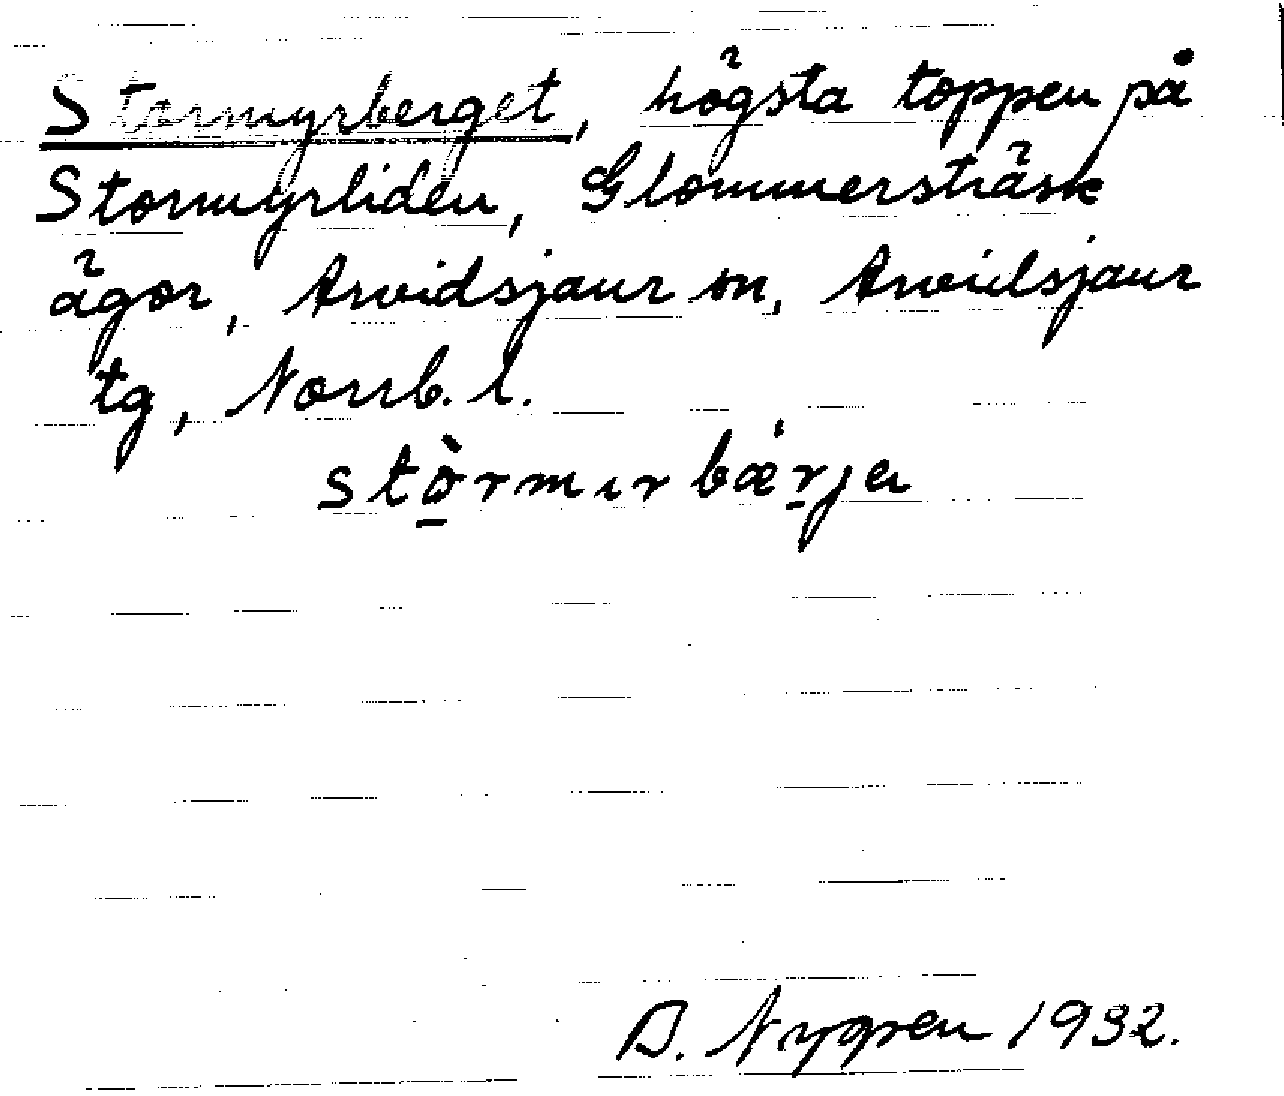 Stormyrberget, högsta toppen på
Stormyrliden, Glommersträsk
ägor, Arvidsjaur sn, Arvidsjaur
tg, Norrb. l.
stò̱rmırbæ̀ṟjen
B. Nygren 1932.